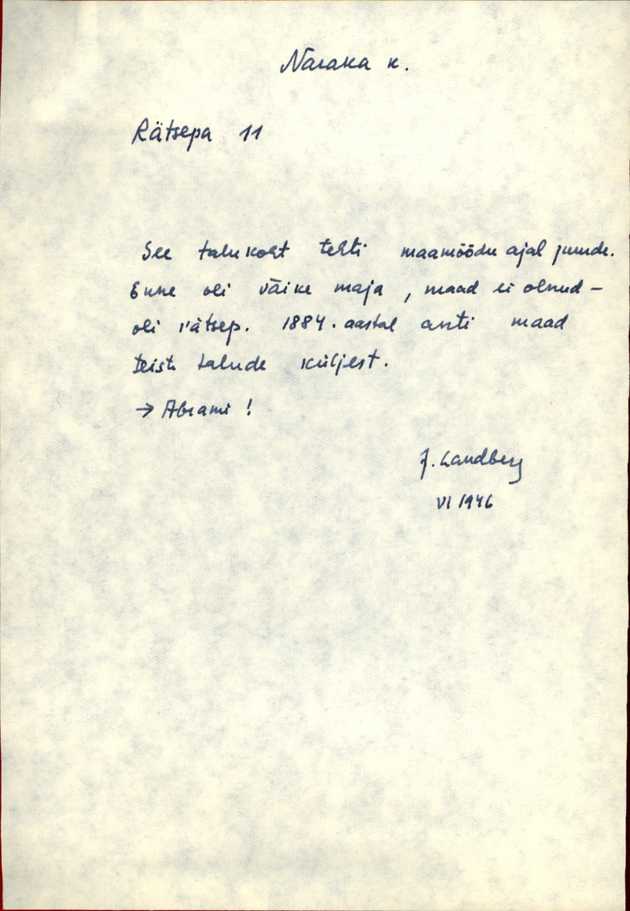 Naraka k.
Rätsepa 11
See talukoht tehti maamõõdu ajal juurde.
Enne oli väike maja, maad ei olnud –
oli rätsep. 1884. aastal anti maad
teiste talude küljest.
→ Abrami!
J. Landberg
VI 1946